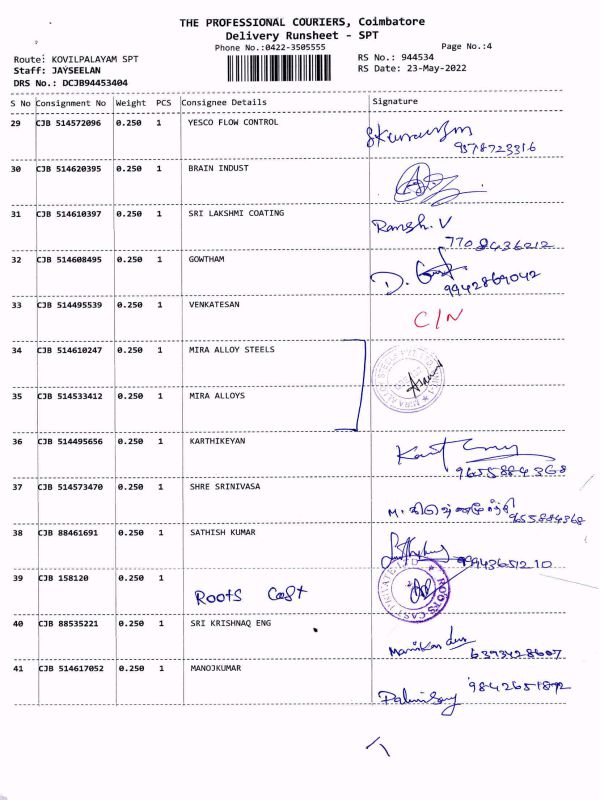 THE PROFESSIONAL COURIERS, Coimbatore
Delivery Runsheet - SPT
Phone No.:0422-3505555
Page No.:4
Route: KOVILPALAYAM SPT
RS No.: 944534
Staff: JAYSEELAN
RS Date: 23-May-2022
DRS No.: DCJB94453404
S No Consignment No Weight PCS Consignee Details Signature
29 CJB 514572096 0.250 1 YESCO FLOW CONTROL
9578723316
30 CJB 514620395 0.250 1 BRAIN INDUST
31 CJB 514610397 0.250 1 SRI LAKSHMI COATING Ramsh. V
7708436212
32 CJB 514608495 0.250 1 GOWTHAM D.
9942869042
33 CJB 514495539 0.250 1 VENKATESAN C/N
34 CJB 514610247 0.250 1 MIRA ALLOY STEELS
35 CJB 514533412 0.250 1 MIRA ALLOYS
36 CJB 514495656 0.250 1 KARTHIKEYAN
9655884368
37 CJB 514573470 0.250 1 SHRE SRINIVASA
9655884368
38 CJB 88461691 0.250 1 SATHISH KUMAR
9943651210
39 CJB 158120 0.250 1 Roots Cast ROOTS CAST PRIVATE LTD
40 CJB 88535221 0.250 1 SRI KRISHNAQ ENG
6393428607
41 CJB 514617052 0.250 1 MANOJKUMAR
9842651892